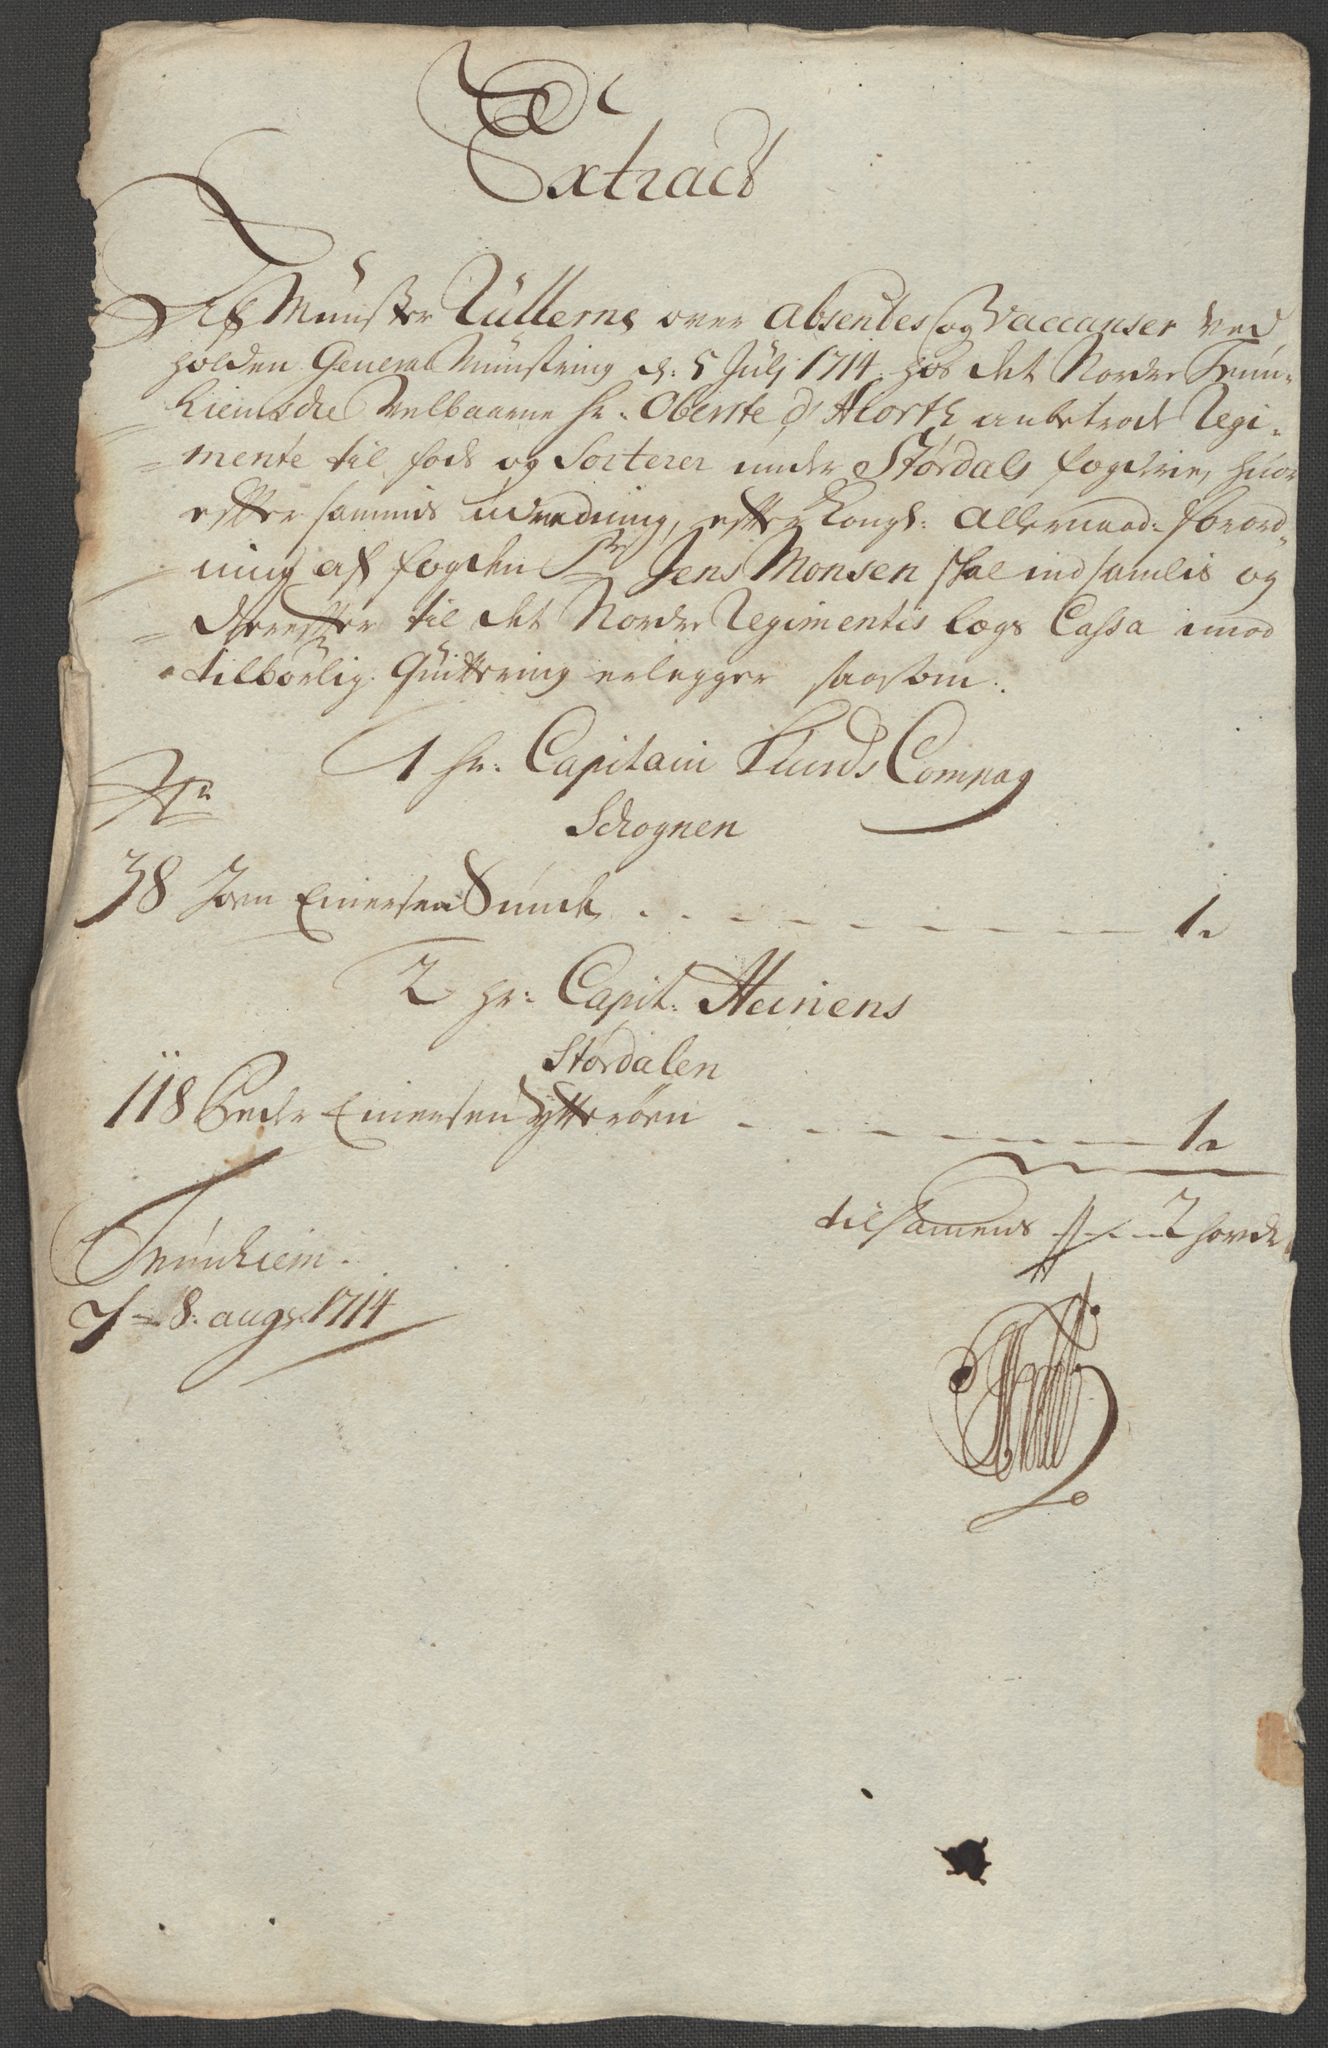 Extract
Af Münster Rüllerne over Absentes og Vaccanser ved
holden General Münstring d: 5 Julj 1714. hos det Nordre Trün-
hiemsche Velbaarne hr. Oberste d' Hlorth anbetrode Regi-
mente til fods og Sorterer under Størdals fogderie, huor
efter sammis udredning, efter Kongl: Allernaad: forord-
ning af fogden Sr Jens Monsen skal indsamlis og
derefter til det Nordre Regimentis Lægs Cassa imod
tilbørlig Quittering erlegger saasom.
1 hr. Capitain Compag
No
Schognen
38 Joen Einersen .. 1
2 hr: Capit: Heinens
Størdalen
118 Peder Einersen Ytterøen .. 1
tilsamens .. 2
Trünhiem.
d 8: aug: 1714